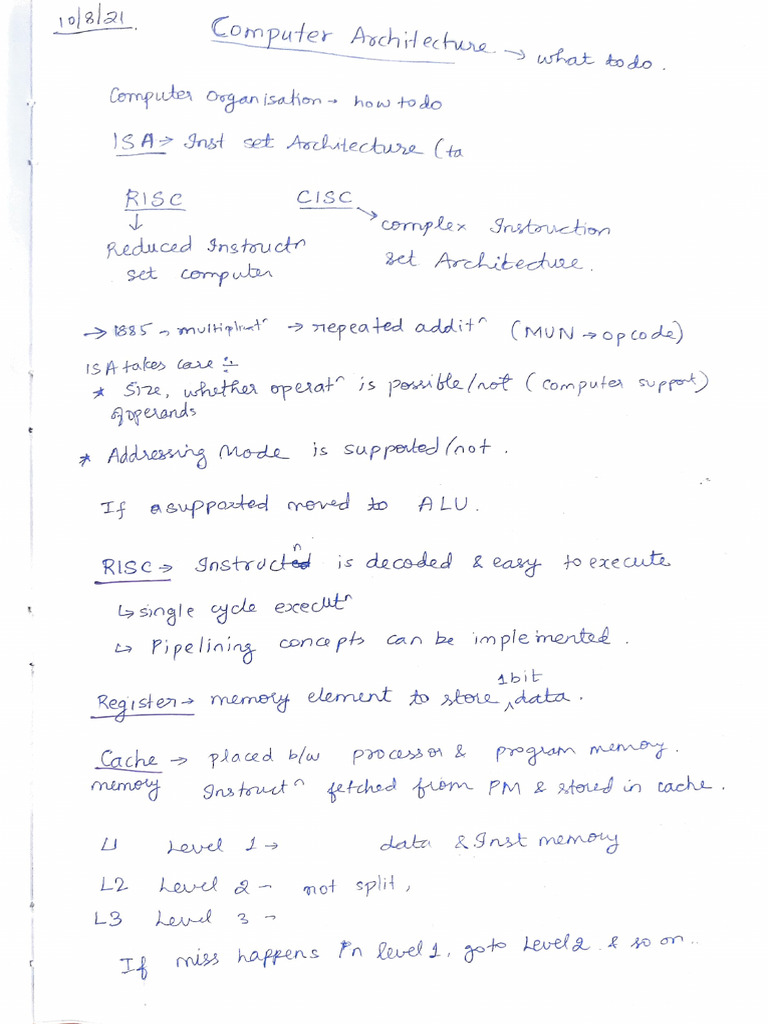 10/8/21.
Computer Architecture → what to do.
Computer Organisation → how to do
ISA → Inst set Architecture (ta
RISC CISC
↓ → complex Instruction
Reduced Instructn set Architecture.
set computer
→ 1885 → multiplicatn → repeated additn (MUN → opcode)
ISA takes care ÷
* Size, whether operatn is possible/not (computer support)
of operands
* Addressing Mode is supported/not.
If supported moved to ALU.
RISC → Instructn is decoded & easy to execute
↳ single cycle executn
↳ Pipelining concepts can be implemented.
Register → memory element to store 1bit data.
Cache → placed b/w processor & program memory.
memory Instructn fetched from PM & stored in cache.
L1 Level 1 → data & Inst memory
L2 Level 2 – not split,
L3 Level 3 –
If miss happens in level 1, goto Level 2 & so on..